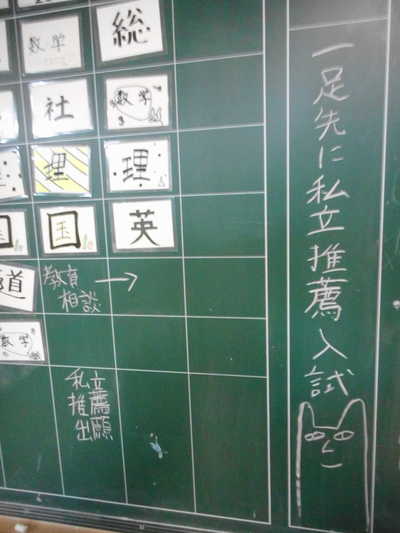 一足先に私立推薦入試
数学
総
社
数学
理
理
国
国
英
道
教育
相談
→
数学
私立
推薦
出願